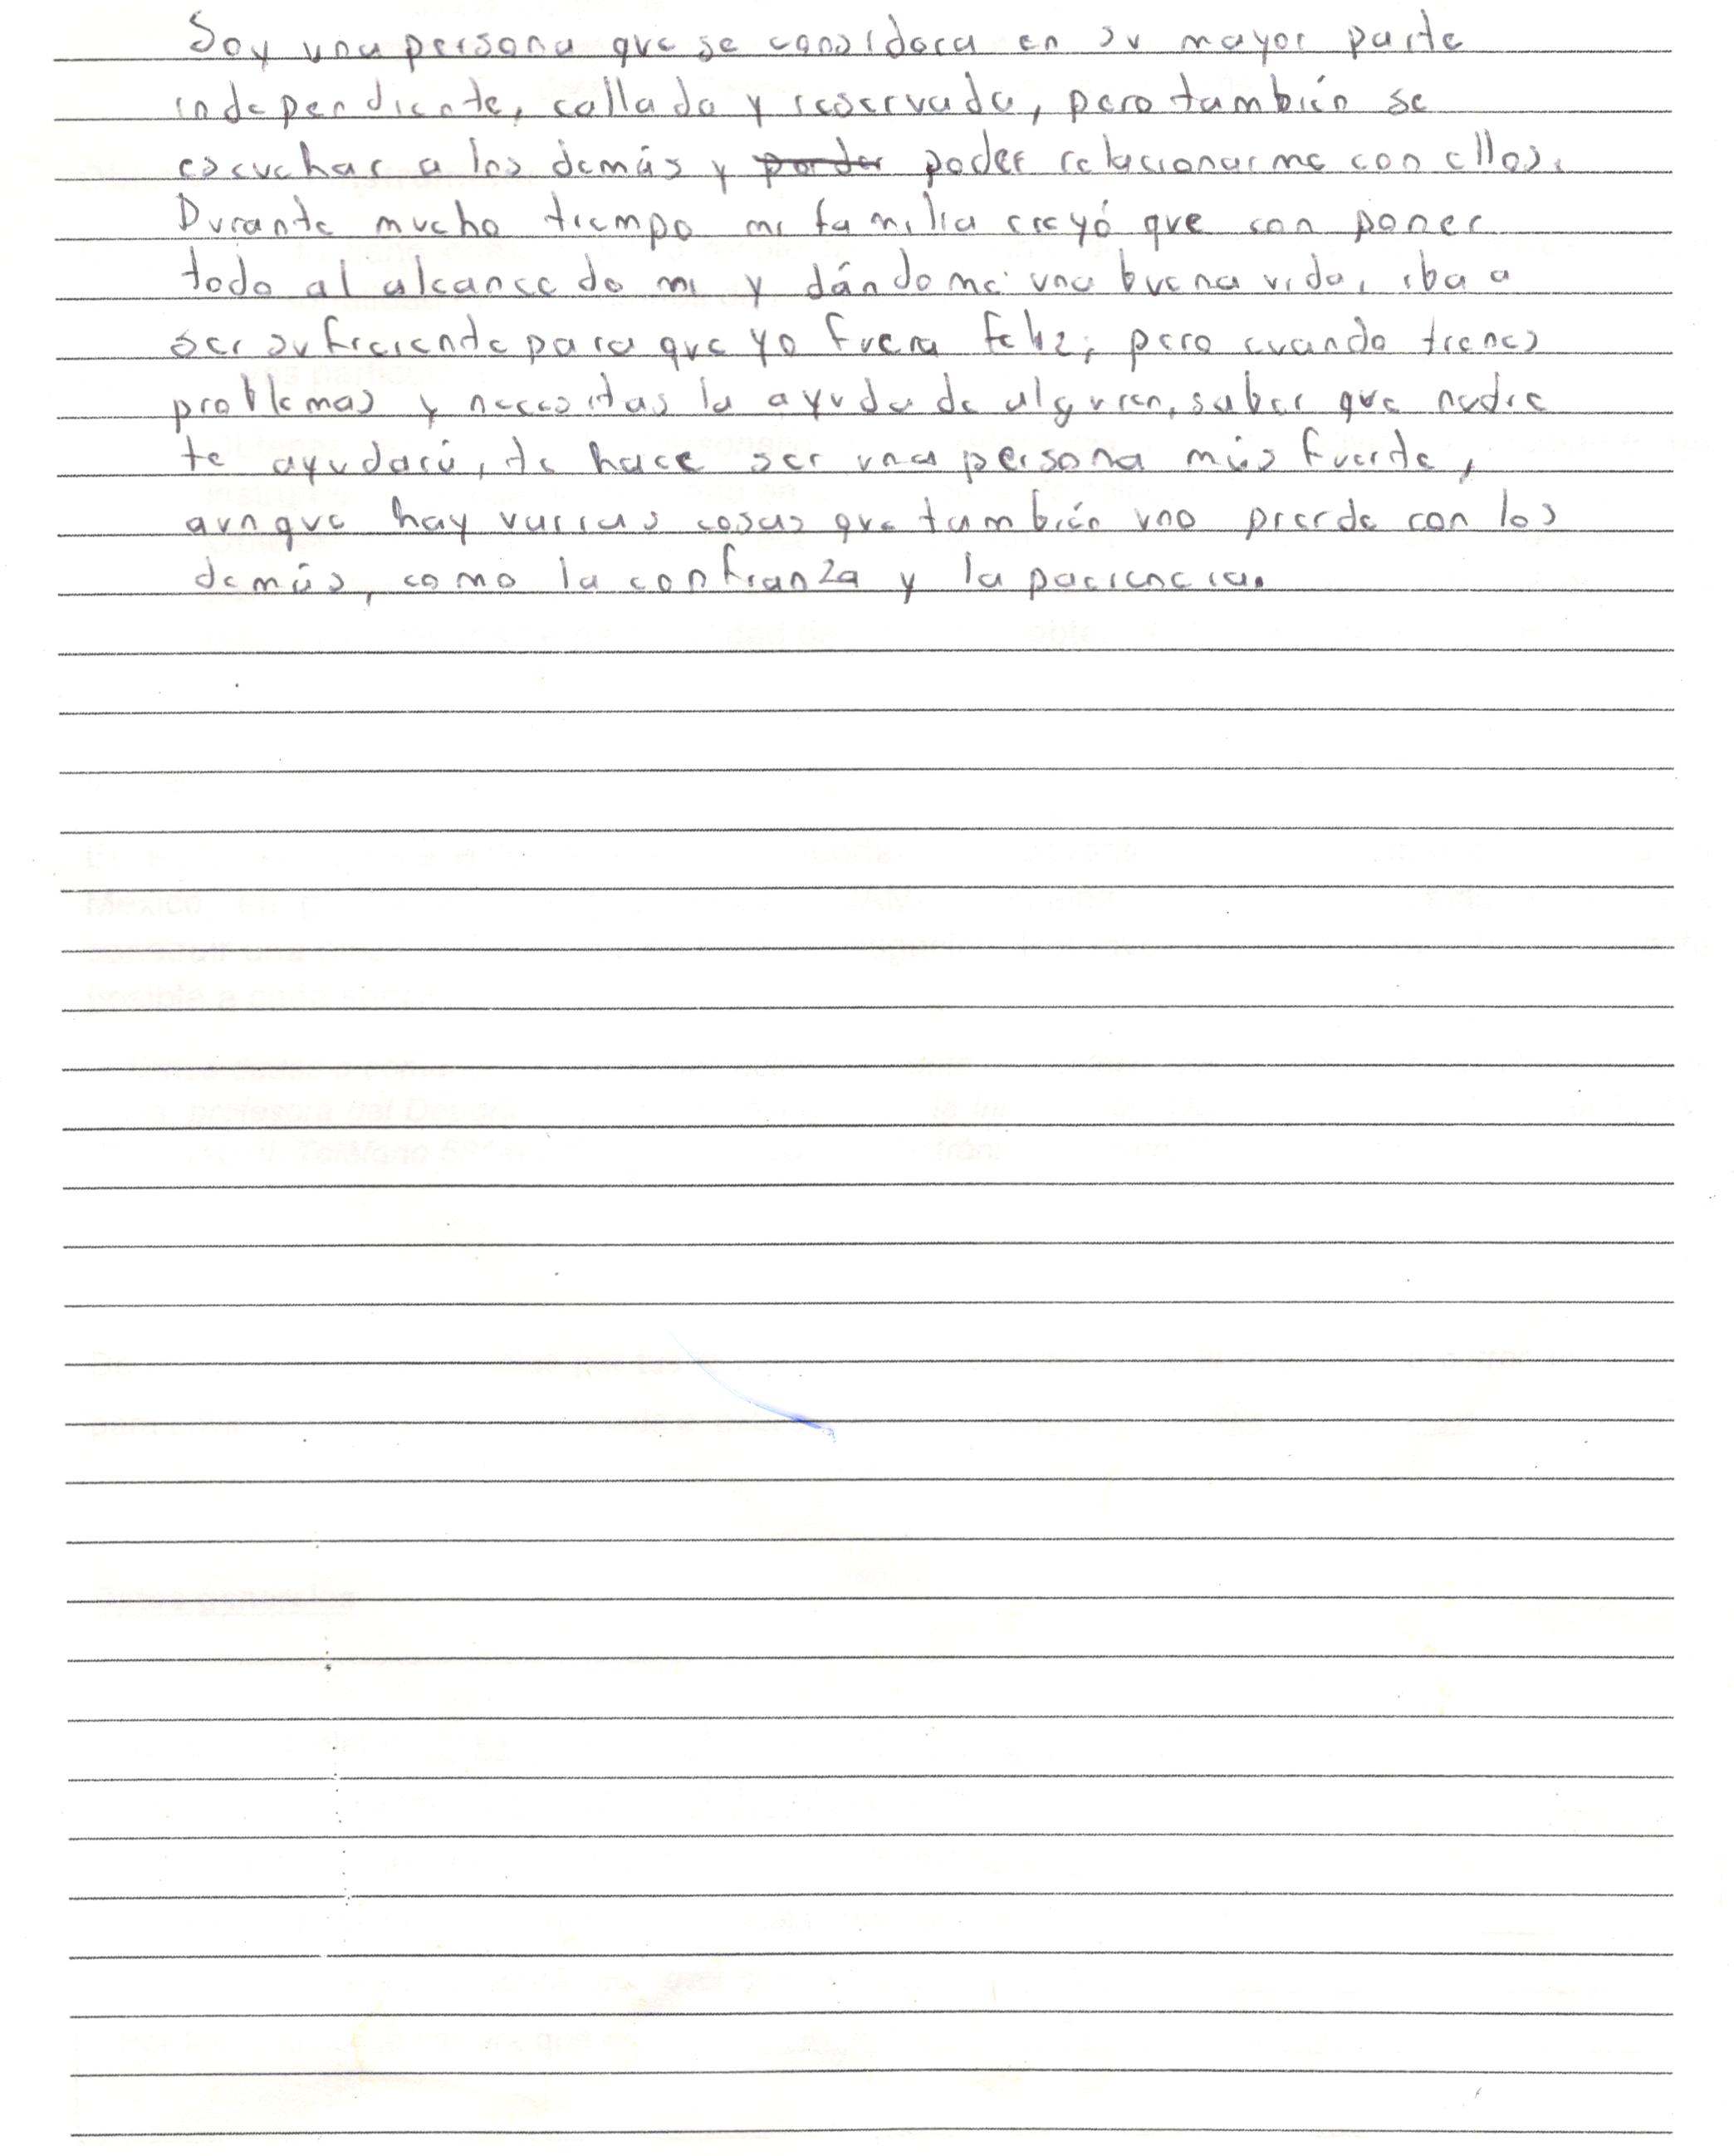 Soy una persona que se considera en su mayor parte
independiente, callada y reservada, pero también se
escuchar a los demás y poder relacionarme con ellos.
Durante mucho tiempo mi familia creyó que con poner
todo al alcance de mi y dándome una buena vida, iba a
ser suficiente para que yo fuera feliz; pero cuando tienes
problemas y necesitas la ayuda de alguien, saber que nadie
te ayudará, te hace ser una persona más fuerte,
aunque hay varias cosas que también uno pierde con los
demás, como la confianza y la paciencia.